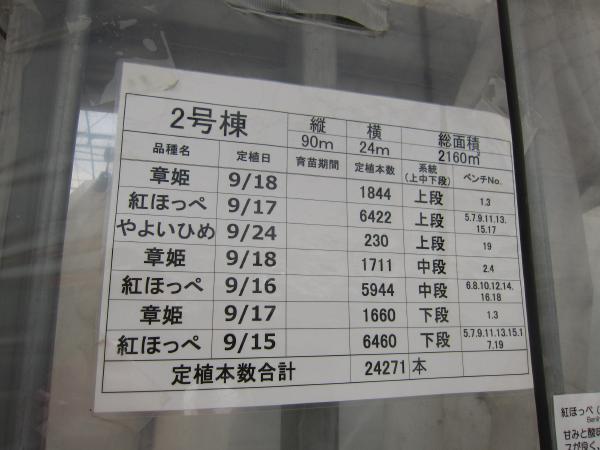 2号棟 縦 横 総面積
90m 24m 2160㎡
品種名 定植日 育苗期間 定植本数 系統(上中下段) ベンチNo.
章姫 9/18 1844 上段 1.3
紅ほっぺ 9/17 6422 上段 5.7.9.11.13.15.17
やよいひめ 9/24 230 上段 19
章姫 9/18 1711 中段 2.4
紅ほっぺ 9/16 5944 中段 6.8.10.12.14.16.18
章姫 9/17 1660 下段 1.3
紅ほっぺ 9/15 6460 下段 5.7.9.11.13.15.17.19
定植本数合計 24271 本
紅ほっぺ
甘みと酸
が良く、